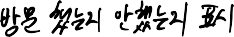 방문 했는지 안했는지 표시